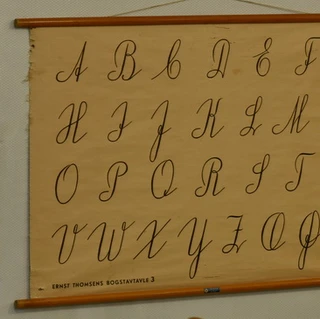 A B C D E F
H I J K L M
O P Q R S T
V W X Y Z Æ Ø
ERNST THOMSENS BOGSTAVTAVLE 3